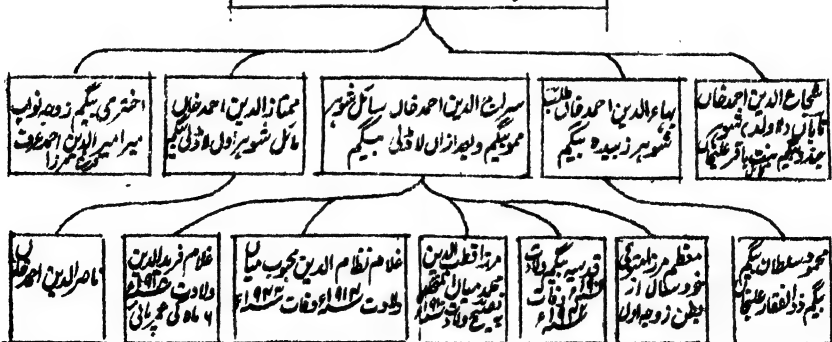 شجاع الدین احمد خاں
تاباں (لاولد) شوہر
بیگم بنت باقر علیخاں
بہاءالدین احمد خاں طالب
شوہر زبیدہ بیگم
سراج الدین احمد خاں سائل شوہر
ممو بیگم و بعد ازاں لاڈلی بیگم
ممتاز الدین احمد خاں
مائل شوہر اول لاڈلی بیگم
اختری بیگم زوجہ نواب
میر امیر الدین احمد عرف
مرزا
محمود سلطان بیگم
بیگم ذوالفقار علیخاں
معظم مرزا متوفی
خورد سال از
بطن زوجہ اول
قدسیہ بیگم ولادت
وفات
مرزا قطب الدین
میاں
ولادت
غلام نظام الدین محبوب میاں
ولادت ۱۹۱۲ء وفات ۱۹۲۳ء
غلام فرید الدین
ولادت
۶ ماہ کی عمر پائی
ناصر الدین احمد خاں